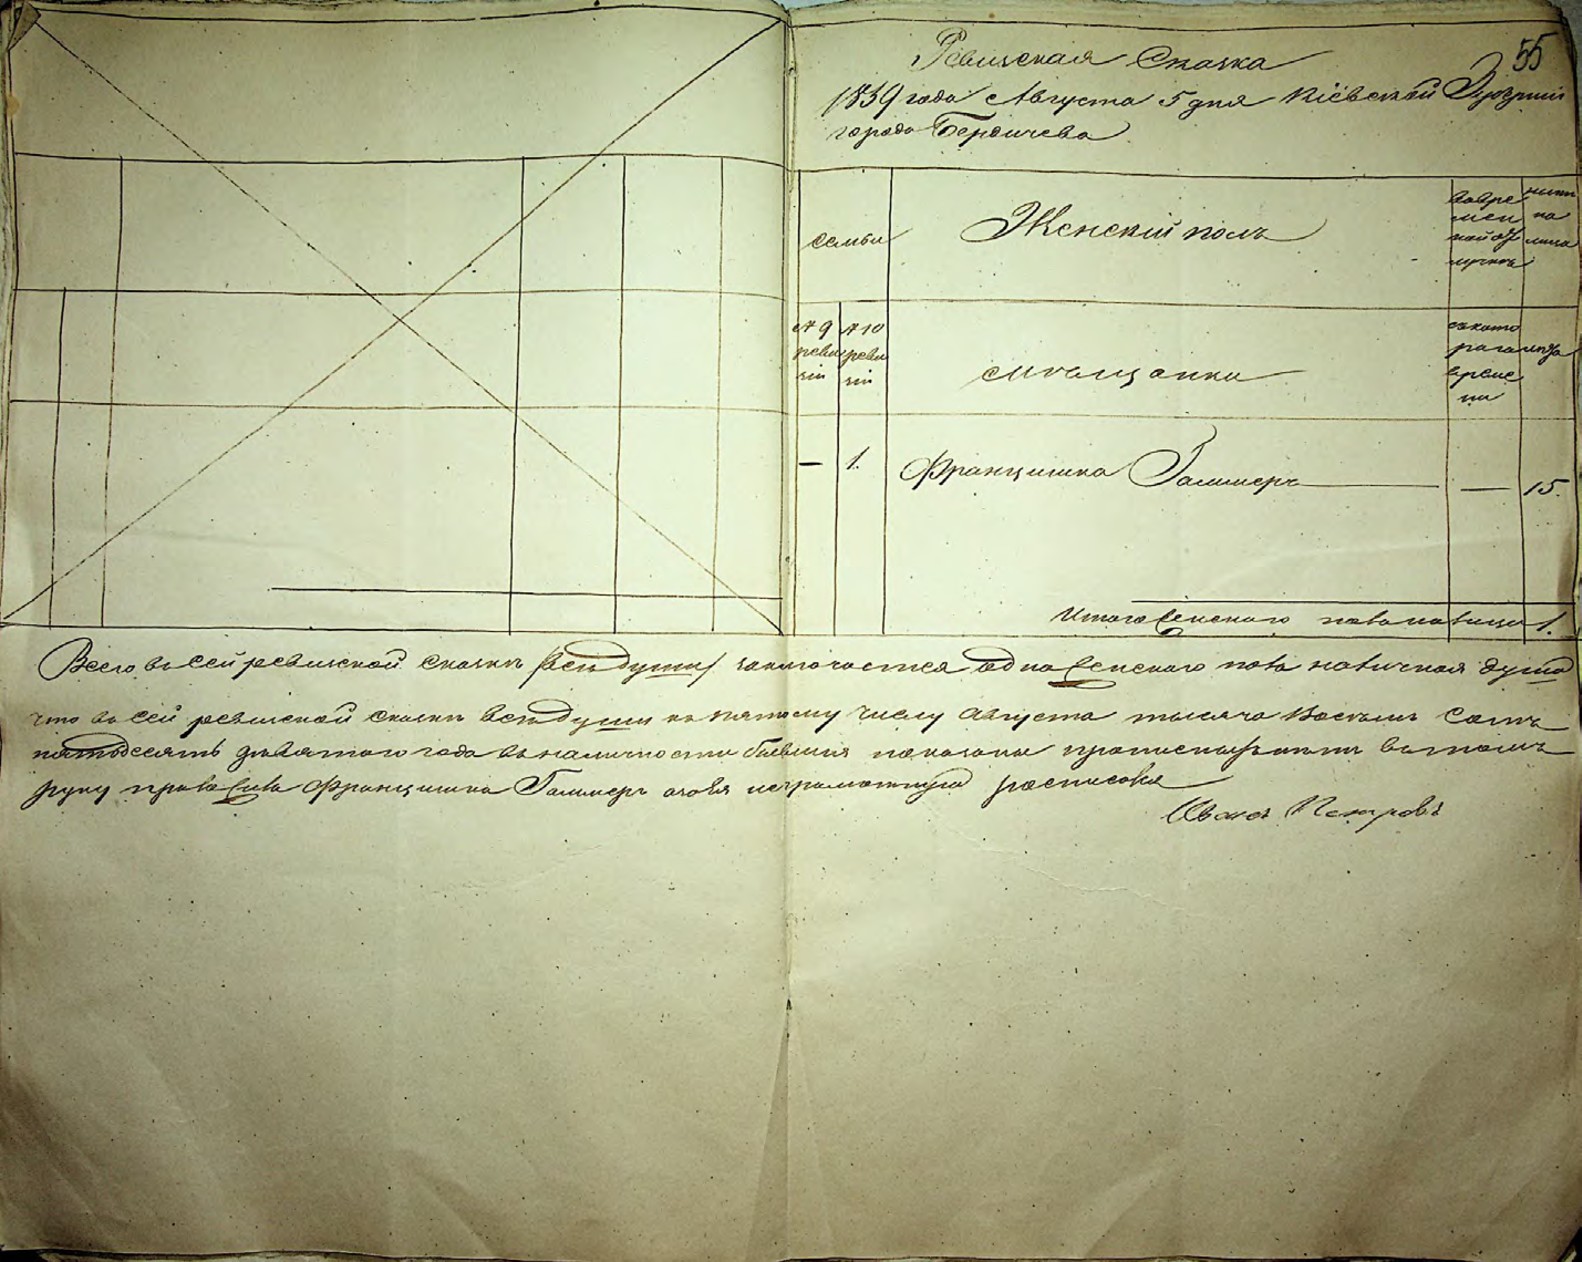 55
Ревизская Сказка
1859 года Августа 5 дня Кіевской Губерніи
города Бердичева
семьи
Женскій полъ
вовре
мен
ной от
лучкѣ
ныни
на
лицо
№ 9
реви
зіи
№ 10
реви
зіи
мѣщанки
съ кото
раго
време
ни
лѣта
— 1. Францишка Гаммеръ — 15.
Итого женскаго пола на лицо 1.
Всего въ сей ревизской сказкѣ заключается одна женскаго пола наличная душа
что въ сей ревизской сказкѣ всѣ души къ пятому числу Августа тысяча Восемь Сотъ
пятьдесятъ девятаго года въ наличности бывшія показаны въ томъ
руку приложила Францишка Гаммеръ а за нея неграмотную росписался
Иванъ Петровъ